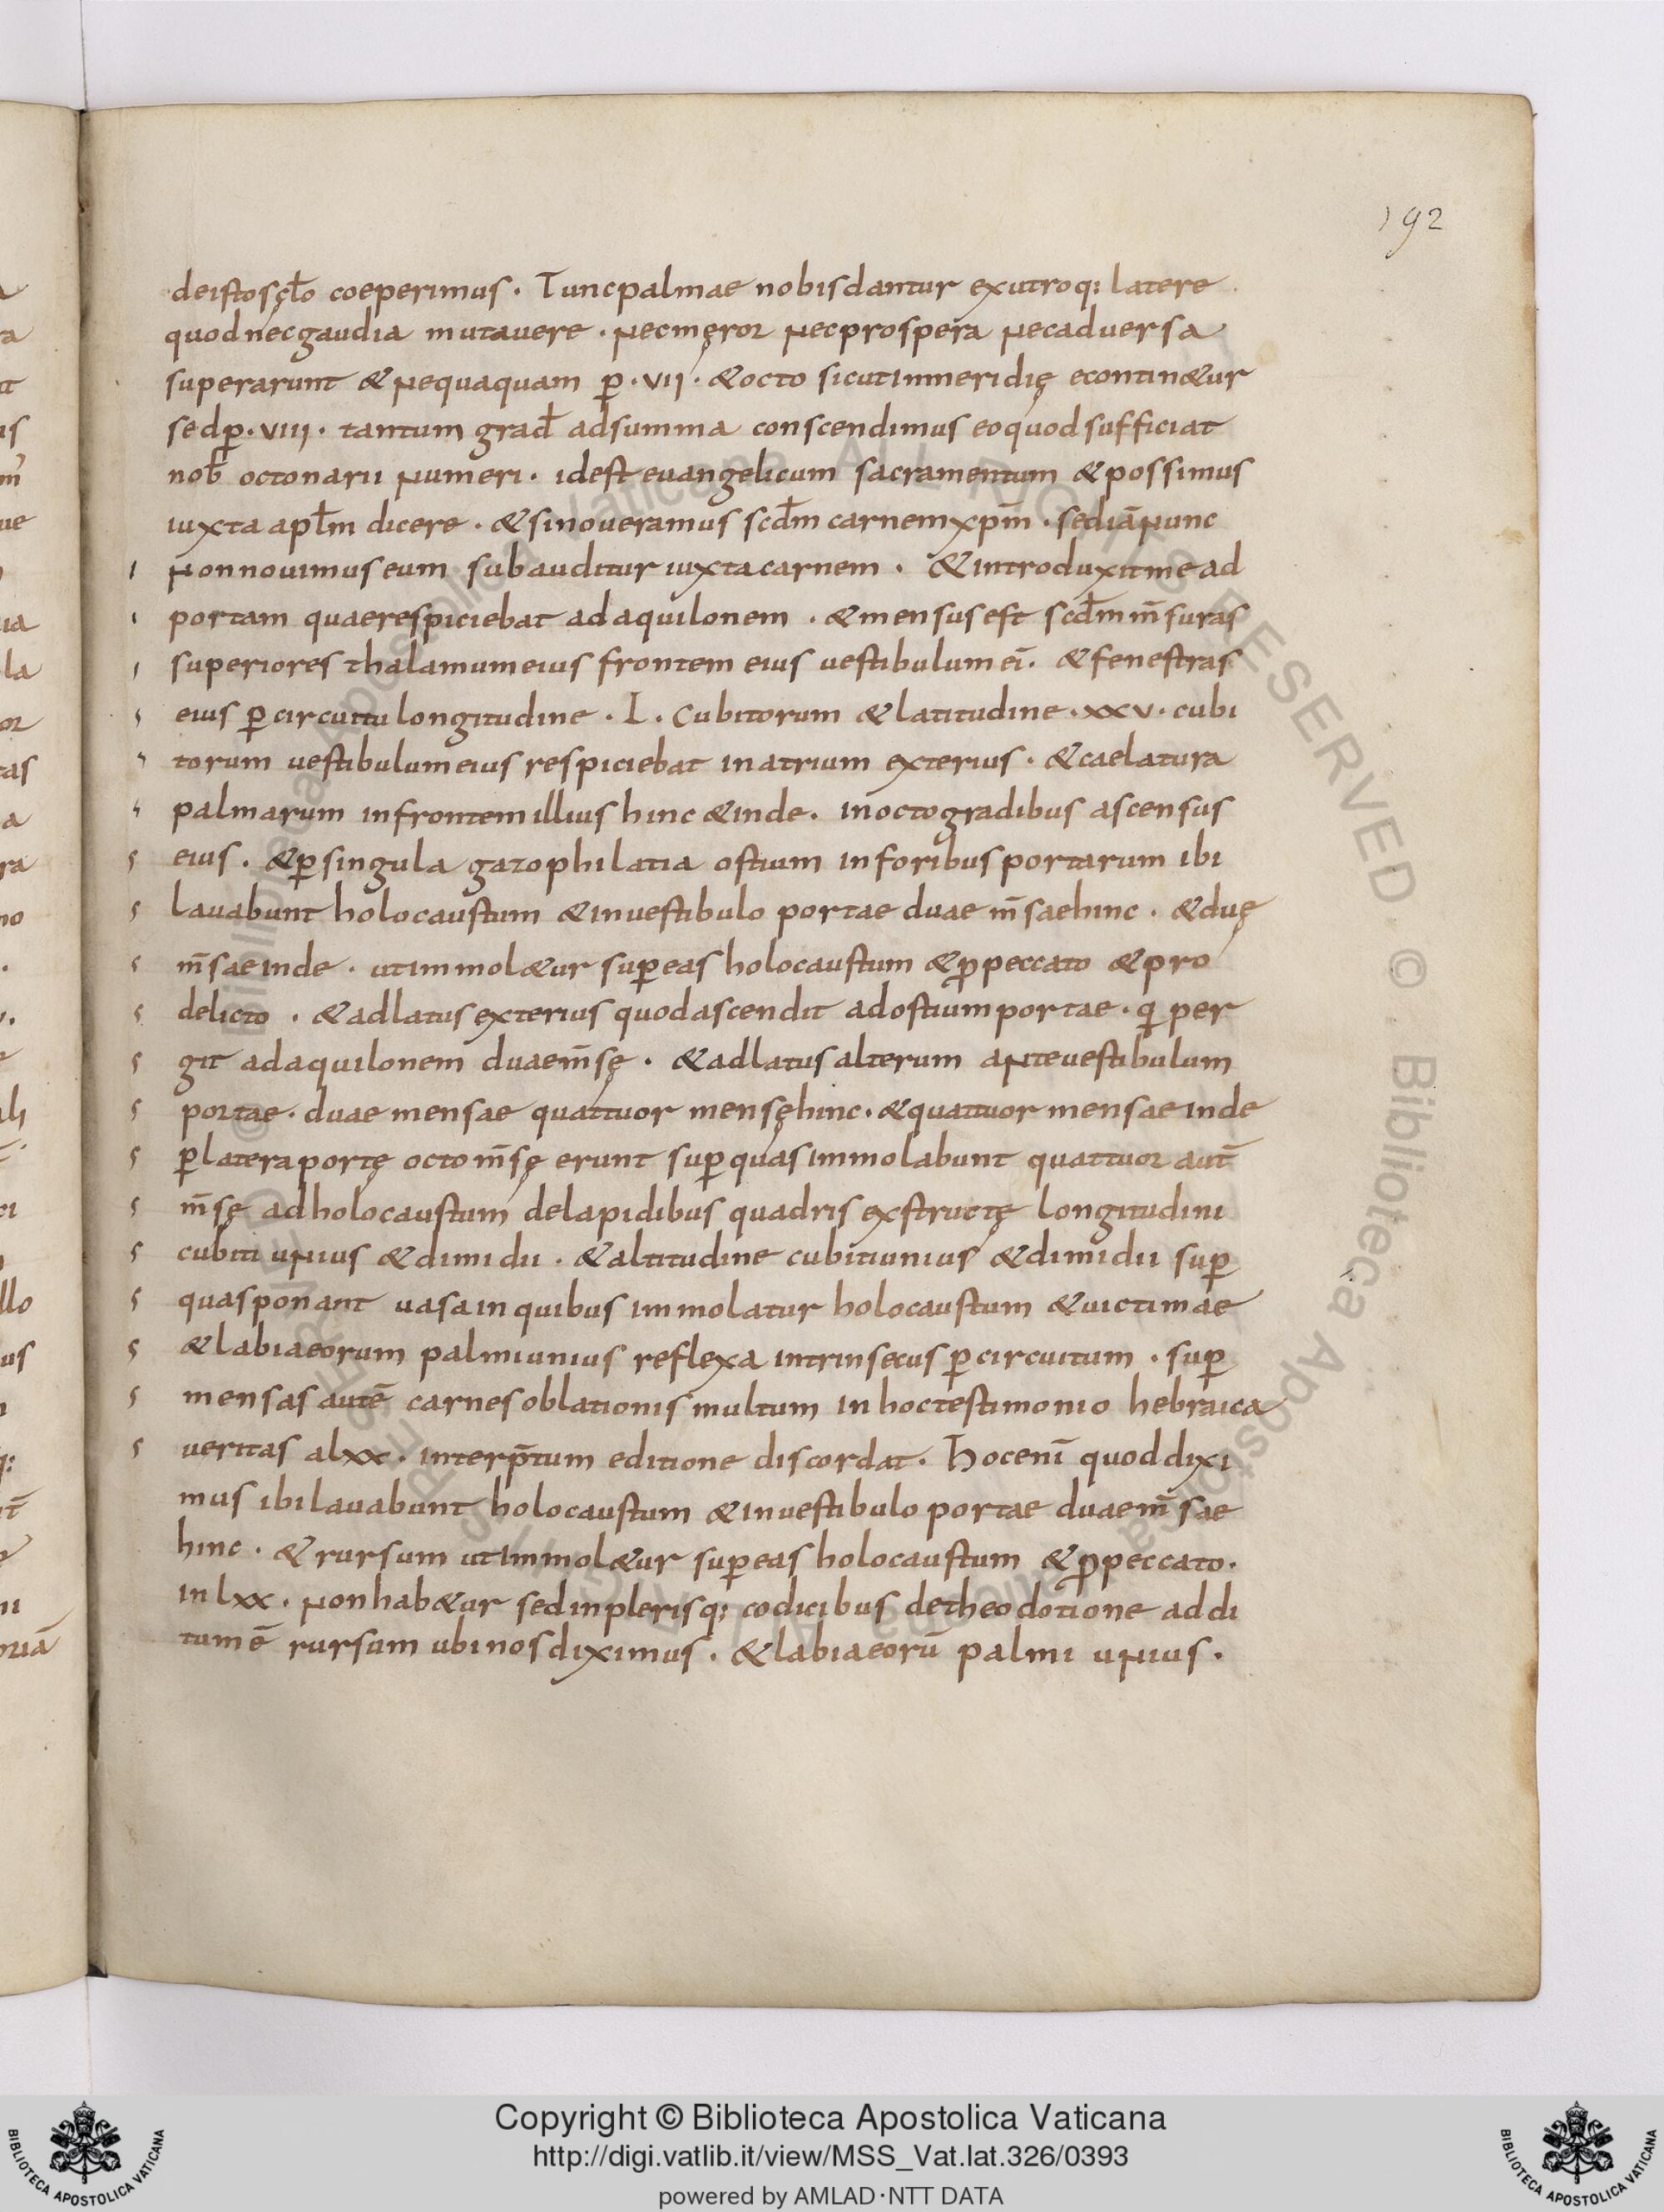 192
deistosęło coeperimus · Tuncpalmae nobisdantur exutroq; latere
quodnecgaudia mutavere · necmęror necprospera necadversa
superarunt & nequaquam ꝑ · vii · &octo sicutinmeridię econtin&ur
sedꝑ · viii · tantum građ adsumma conscendimus eoquodsufficiat
nob̄ octonarii numeri · idest euangelicum sacramentum &possimus
iuxta apƚm dicere · &sinoveramus scđm carnemxp̄m · sediānunc
nonnouimuseum subauditur iuxtacarnem · &introduxitmead
portam quaerespiciebat adaquilonem · &mensusest scđmm̄suras
superiores thalamumeius frontem eius uestibulumeī · &fenestras
eius ꝑcircuitulongitudine · L · cubitorum &latitudine · xxv · cubi
torum uestibulumeius respiciebat inatrium exterius · &caelatura
palmarum infrontemillius hinc &inde · inoctogradibus ascensus
eius · &ꝑsingula gazophilatia ostium inforibusportarum ibi
lauabunt holocaustum &inuestibulo portae duae m̄saehinc · &duę
m̄saeinde · utimmol&ur suꝑeas holocaustum &ꝓpeccato &pro
delicto · &adlatus exterius quodascendit adostiumportae · q̣ per
git adaquilonem duaem̄sę · &adlatusalterum anteuestibulum
portae · duae mensae quattuor mensęhinc · &quattuor mensaeinde
ꝑlateraportę octom̄sę erunt suꝑquasimmolabunt quattuor aut̄
m̄sę adholocaustum delapidibus quadris exstructę longitudini
cubiti unius &dimidii · &altitudine cubitiunius &dimidii suꝑ
quasponant uasain quibus immolatur holocaustum &uictimae
&labiaeorum palmiunius reflexa intrinsecus ꝑcircuitum · suꝑ
mensasautē carnesoblationis multum inhoctestimonio hebraica
ueritas alxx · interp̄tum editione discordat · Hocenī quoddixi
mus ibilauabunt holocaustum &inuestibulo portae duaem̄sae
hinc · &rursum utimmol&ur suꝑeas holocaustum &ꝓpeccato ·
inlxx · nonhab&ur sedinplerisq; codicibus detheodotione addi
tumē rursum ubinosdiximus · &labiaeorū palmi unius ·
Copyright © Biblioteca Apostolica Vaticana
http://digi.vatlib.it/view/MSS_Vat.lat.326/0393
powered by AMLAD·NTT DATA